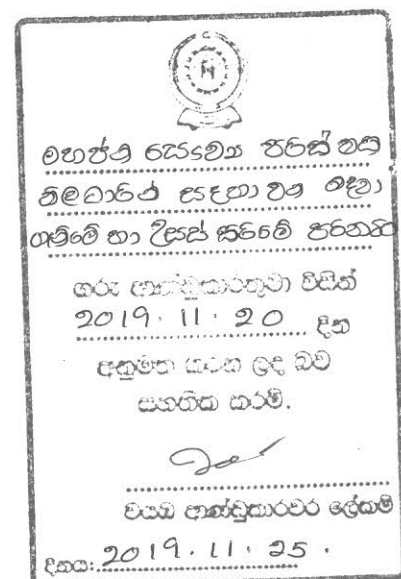 මහජන සෞඛ්‍ය පරීක්ෂක
නිලධාරීන් සඳහා වන බඳවා
ගැනීමේ හා උසස් කිරීමේ පරිපාටිය
ගරු ආණ්ඩුකාරතුමා විසින්
2019. 11. 20 දින
අනුමත කරන ලද බව
සහතික කරමි.
වයඹ ආණ්ඩුකාරවර ලේකම්
දිනය: 2019. 11. 25.